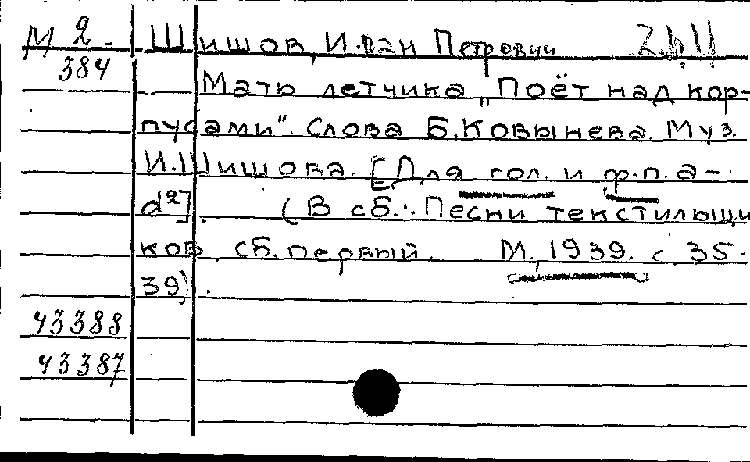 М 2 - Шишов, Иван Петрович
384
Мать летчика „Поёт над кор-
пусами". Слова Б.Ковынева. Муз.
И.Шишова. [Для гол. и ф.п. a-
d²]. (В сб.: Песни текстильщи
ков сб. первый. М., 1939. с. 35-
39).
43388
43387